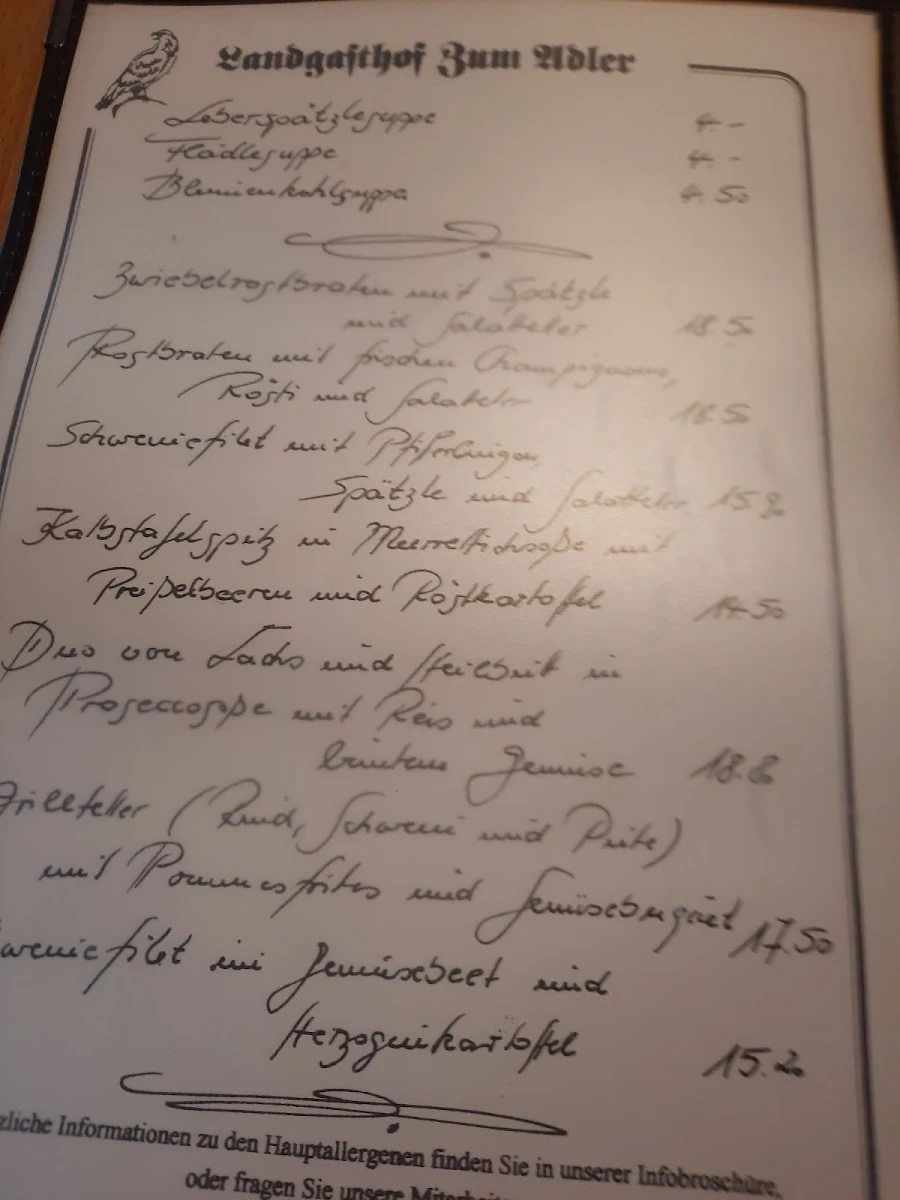 Landgasthof Zum Adler
Leberspätzlesuppe 4.-
Flädlesuppe 4.-
Blumenkohlsuppe 4.50
Zwiebelrostbraten mit Spätzle
und Salatteller 18.50
Rostbraten mit frischen Champignons,
Rösti und Salatteller 18.50
Schweinefilet mit Pfifferlingen,
Spätzle und Salatteller
Kalbstafelspitz in Meerrettichsoße mit
Preißelbeeren und Röstkartoffel 14.50
Duo von Lachs und Heilbutt in
Proseccosoße mit Reis und
buntem Gemüse
Grillteller (Rind, Schwein und Pute)
mit Pommes frites und Gemüsebuqúet 17.50
weinefilet im Gemüsebeet und
Herzoginkartoffel 15.20
zliche Informationen zu den Hauptallergenen finden Sie in unserer Infobroschüre,
oder fragen Sie unsere Mitarbeit